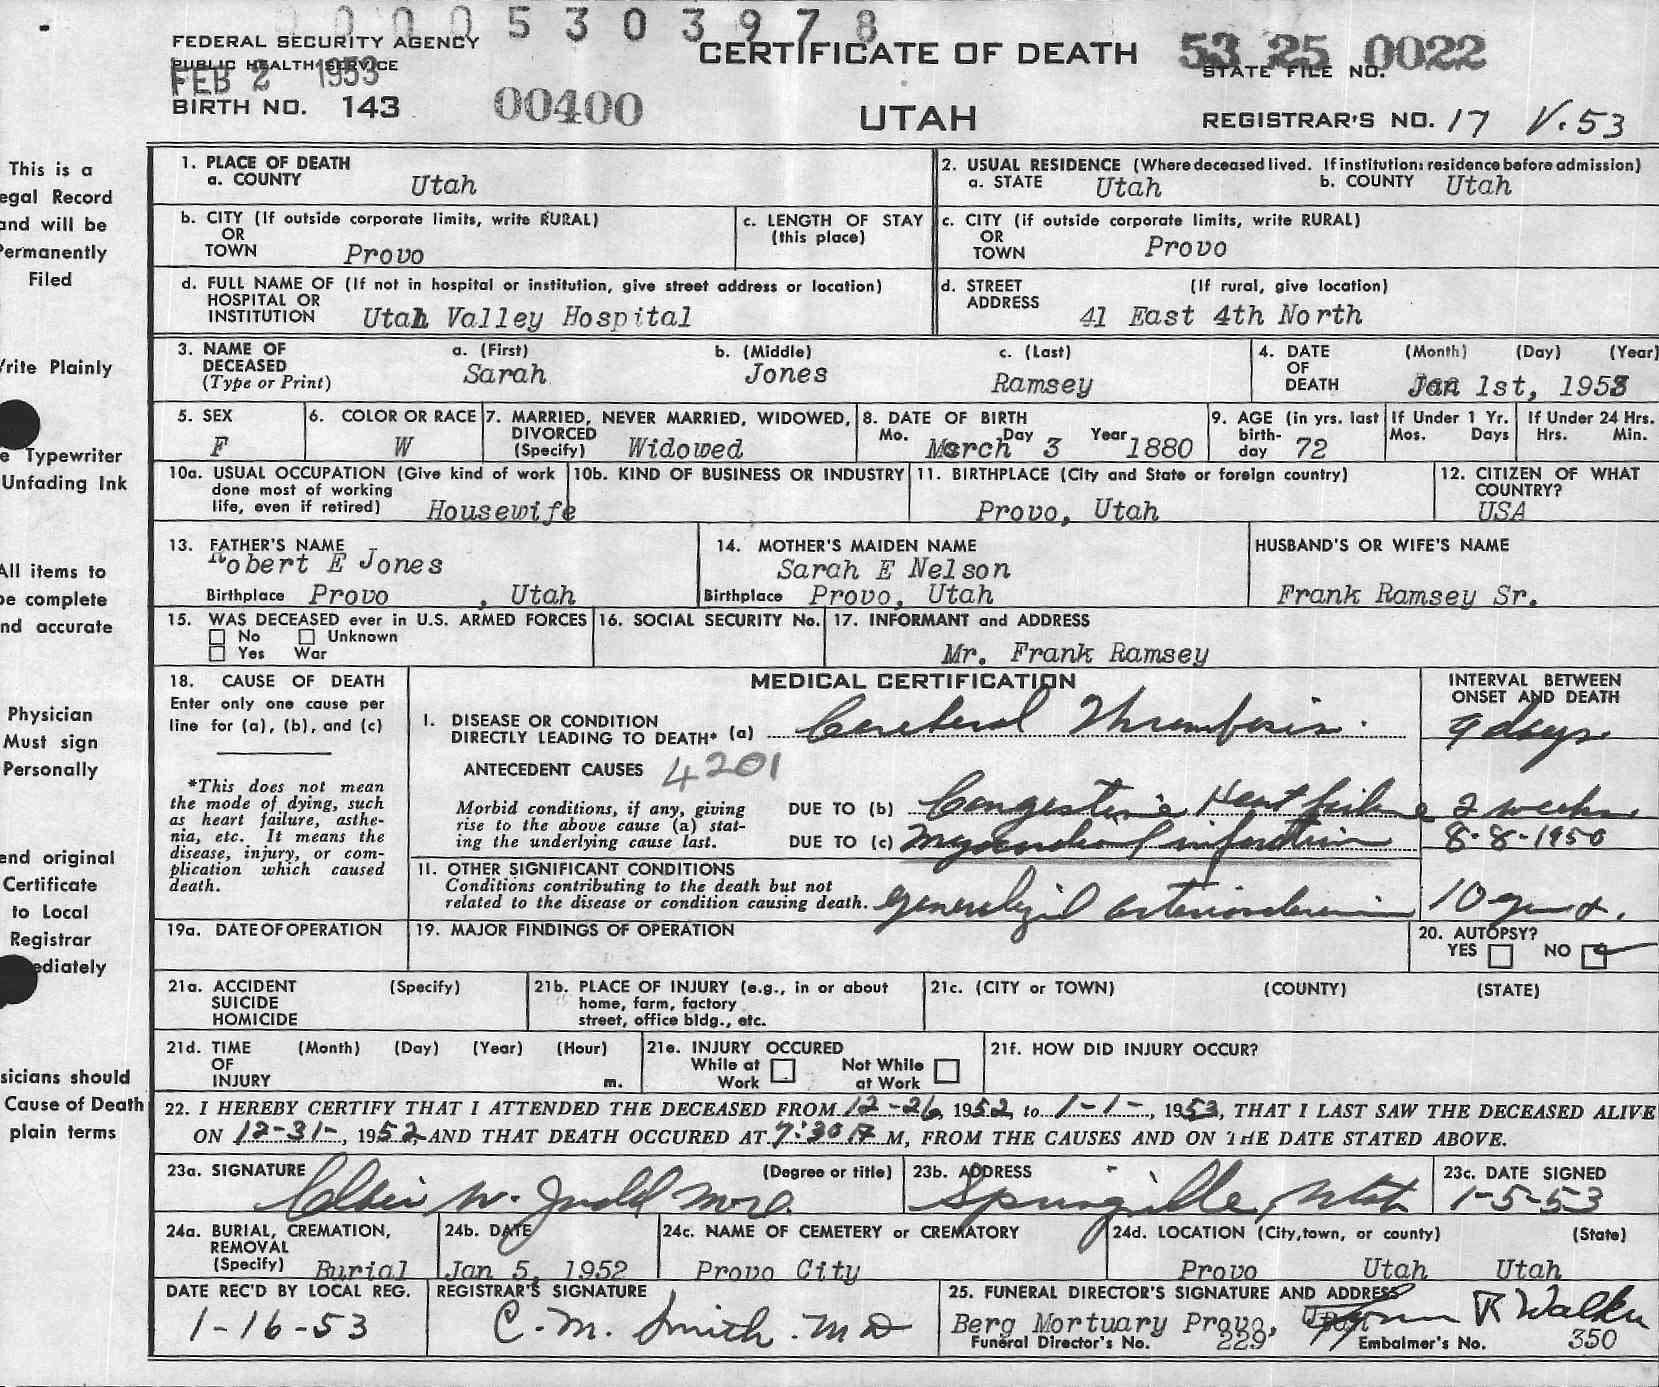 0005303978
FEDERAL SECURITY AGENCY
PUBLIC HEALTH SERVICE
FEB 2 1953
CERTIFICATE OF DEATH
53 25 0022
STATE FILE NO.
BIRTH NO. 143
00400
UTAH
REGISTRAR'S NO. 17 V.53
This is a
egal Record
and will be
Permanently
Filed
Write Plainly
e Typewriter
Unfading Ink
All items to
be complete
nd accurate
Physician
Must sign
Personally
end original
Certificate
to Local
Registrar
ediately
sicians should
Cause of Death
plain terms
1. PLACE OF DEATH
a. COUNTY Utah
2. USUAL RESIDENCE (Where deceased lived. If institution: residence before admission)
a. STATE Utah b. COUNTY Utah
b. CITY (If outside corporate limits, write RURAL)
OR
TOWN Provo
c. LENGTH OF STAY
(this place)
c. CITY (if outside corporate limits, write RURAL)
OR
TOWN Provo
d. FULL NAME OF (If not in hospital or institution, give street address or location)
HOSPITAL OR
INSTITUTION Utah Valley Hospital
d. STREET (If rural, give location)
ADDRESS
41 East 4th North
3. NAME OF DECEASED
(Type or Print)
a. (First) Sarah
b. (Middle) Jones
c. (Last) Ramsey
4. DATE OF DEATH (Month) (Day) (Year)
Jan 1st, 1953
5. SEX
F
6. COLOR OR RACE
W
7. MARRIED, NEVER MARRIED, WIDOWED,
DIVORCED
(Specify) Widowed
8. DATE OF BIRTH
Mo. Day Year
March 3 1880
9. AGE (in yrs. last
birth-
day 72
If Under 1 Yr.
Mos. Days
If Under 24 Hrs.
Hrs. Min.
10a. USUAL OCCUPATION (Give kind of work
done most of working
life, even if retired) Housewife
10b. KIND OF BUSINESS OR INDUSTRY
11. BIRTHPLACE (City and State or foreign country)
Provo, Utah
12. CITIZEN OF WHAT
COUNTRY?
USA
13. FATHER'S NAME
Robert E Jones
Birthplace Provo , Utah
14. MOTHER'S MAIDEN NAME
Sarah E Nelson
Birthplace Provo, Utah
HUSBAND'S OR WIFE'S NAME
Frank Ramsey Sr.
15. WAS DECEASED ever in U.S. ARMED FORCES
No Unknown
Yes War
16. SOCIAL SECURITY No.
17. INFORMANT and ADDRESS
Mr. Frank Ramsey
18. CAUSE OF DEATH
Enter only one cause per
line for (a), (b), and (c)
*This does not mean
the mode of dying, such
as heart failure, asthe-
nia, etc. It means the
disease, injury, or com-
plication which caused
death.
MEDICAL CERTIFICATION
INTERVAL BETWEEN
ONSET AND DEATH
I. DISEASE OR CONDITION
DIRECTLY LEADING TO DEATH* (a) Cerebral Thrombosis. 9 days
ANTECEDENT CAUSES 4201
Morbid conditions, if any, giving
rise to the above cause (a) stat-
ing the underlying cause last.
DUE TO (b) Congestive Heart failure 2 weeks
DUE TO (c) Myocardial infarction 8-8-1950
11. OTHER SIGNIFICANT CONDITIONS
Conditions contributing to the death but not
related to the disease or condition causing death. generalized arteriosclerosis 10 years.
19a. DATE OF OPERATION
19. MAJOR FINDINGS OF OPERATION
20. AUTOPSY?
YES NO
21a. ACCIDENT (Specify)
SUICIDE
HOMICIDE
21b. PLACE OF INJURY (e.g., in or about
home, farm, factory
street, office bldg., etc.
21c. (CITY or TOWN) (COUNTY) (STATE)
21d. TIME (Month) (Day) (Year) (Hour)
OF
INJURY m.
21e. INJURY OCCURED
While at Work Not While at Work
21f. HOW DID INJURY OCCUR?
22. I HEREBY CERTIFY THAT I ATTENDED THE DECEASED FROM 12-26, 1952, to 1-1-, 1953, THAT I LAST SAW THE DECEASED ALIVE
ON 12-31-, 1952 AND THAT DEATH OCCURED AT 7:30 A M, FROM THE CAUSES AND ON THE DATE STATED ABOVE.
23a. SIGNATURE (Degree or title)
W. Judd M.D.
23b. ADDRESS
Springville, Utah
23c. DATE SIGNED
1-5-53
24a. BURIAL, CREMATION,
REMOVAL
(Specify) Burial
24b. DATE
Jan 5, 1952
24c. NAME OF CEMETERY or CREMATORY
Provo City
24d. LOCATION (City, town, or county) (State)
Provo Utah Utah
DATE REC'D BY LOCAL REG.
1-16-53
REGISTRAR'S SIGNATURE
C. M. Smith. M D
25. FUNERAL DIRECTOR'S SIGNATURE AND ADDRESS
Berg Mortuary Provo, R Walker
Funeral Director's No. 229 Embalmer's No. 350